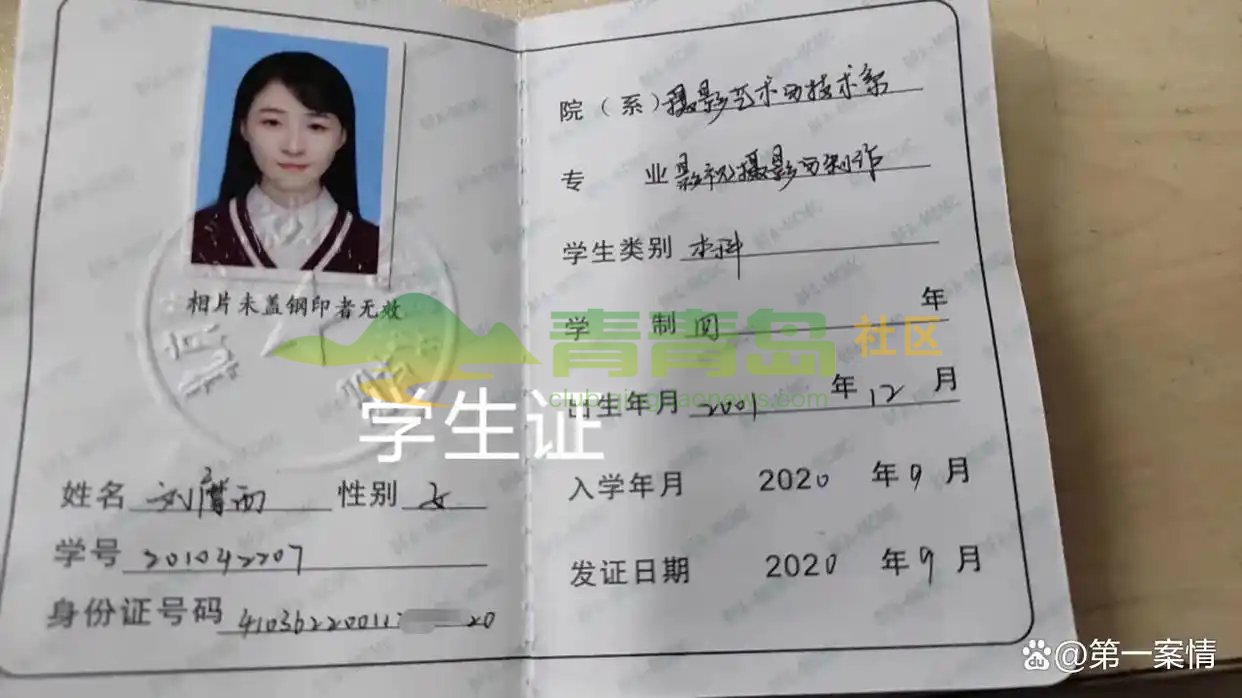 相片未盖钢印者无效
学生证
姓名 刘 西 性别 女
学号 201042207
身份证号码 41036220011 20
院（系）摄影艺术与技术系
专 业 影视摄影与制作
学生类别 本科
学 制 四 年
出生年月 2001 年 12 月
入学年月 2020 年 9 月
发证日期 2020 年 9 月
青青岛 社区
club.qingdaonews.com
@第一案情